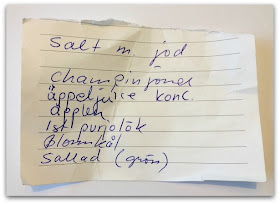 Salt m jod
Champinjoner
äppeljuice konc.
äpplen
1st purjolök
Blomkål
Sallad (grön)